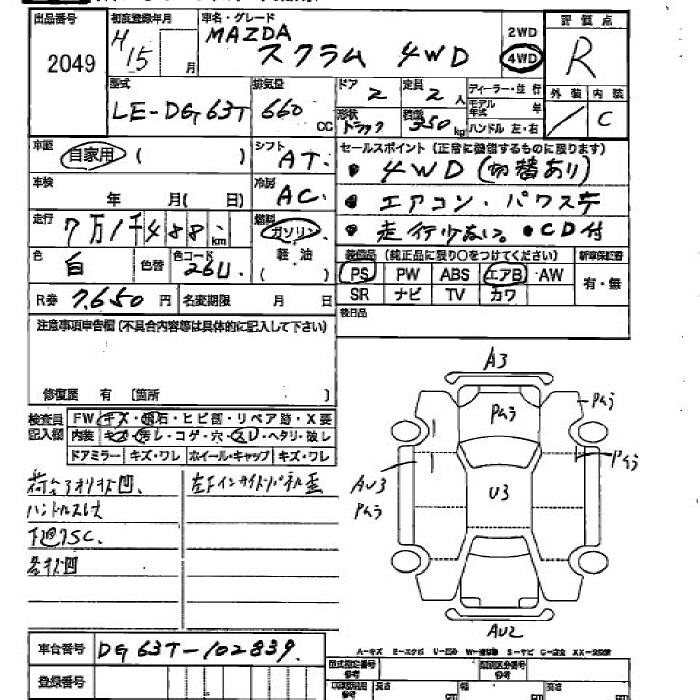 出品番号 初度登録年月 車名・グレード 評価点
2049 H15 月 MAZDA スクラム 4WD 2WD 4WD R
型式 排気量 ドア 2 定員 2人 ディーラー・並行 外装 内装
LE-DG63T 660 CC 形状 トラック 積載 350kg モデル年式 年 ハンドル 左・右 / C
車歴 自家用 ( ) シフト AT. セールスポイント (正常に機能するものに限ります)
車検 年 月(日) 冷房 AC. ・4WD (切替あり)
・エアコン・パワステ
走行 7万1千488 km 燃料 ガソリン ・走行少ない。・CD付
色 白 色替 色コード 26U 軽油 ( ) 装備品 (純正品に限り○をつけてください) 新車保証書
PS PW ABS エアB AW 有・無
R券 7,650円 名変期限 月 日 SR ナビ TV カワ
注意事項申告欄(不具合内容等は具体的に記入して下さい) 後日品
修復歴 有 [箇所 ]
検査員記入欄 FW キズ・飛石・ヒビ割・リペア跡・X要
内装 キズ・汚レ・コゲ・穴・スレ・ヘタリ・破レ
ドアミラー キズ・ワレ ホイール・キャップ キズ・ワレ
ハンドルスレ
下廻りSC.
A3
Pムラ
Pムラ
Pムラ
AU3
Pムラ
U3
AU2
車台番号 DG63T-102839.
登録番号
型式指定番号 参考 類別区分番号 参考
長さ cm 幅 cm 高さ cm